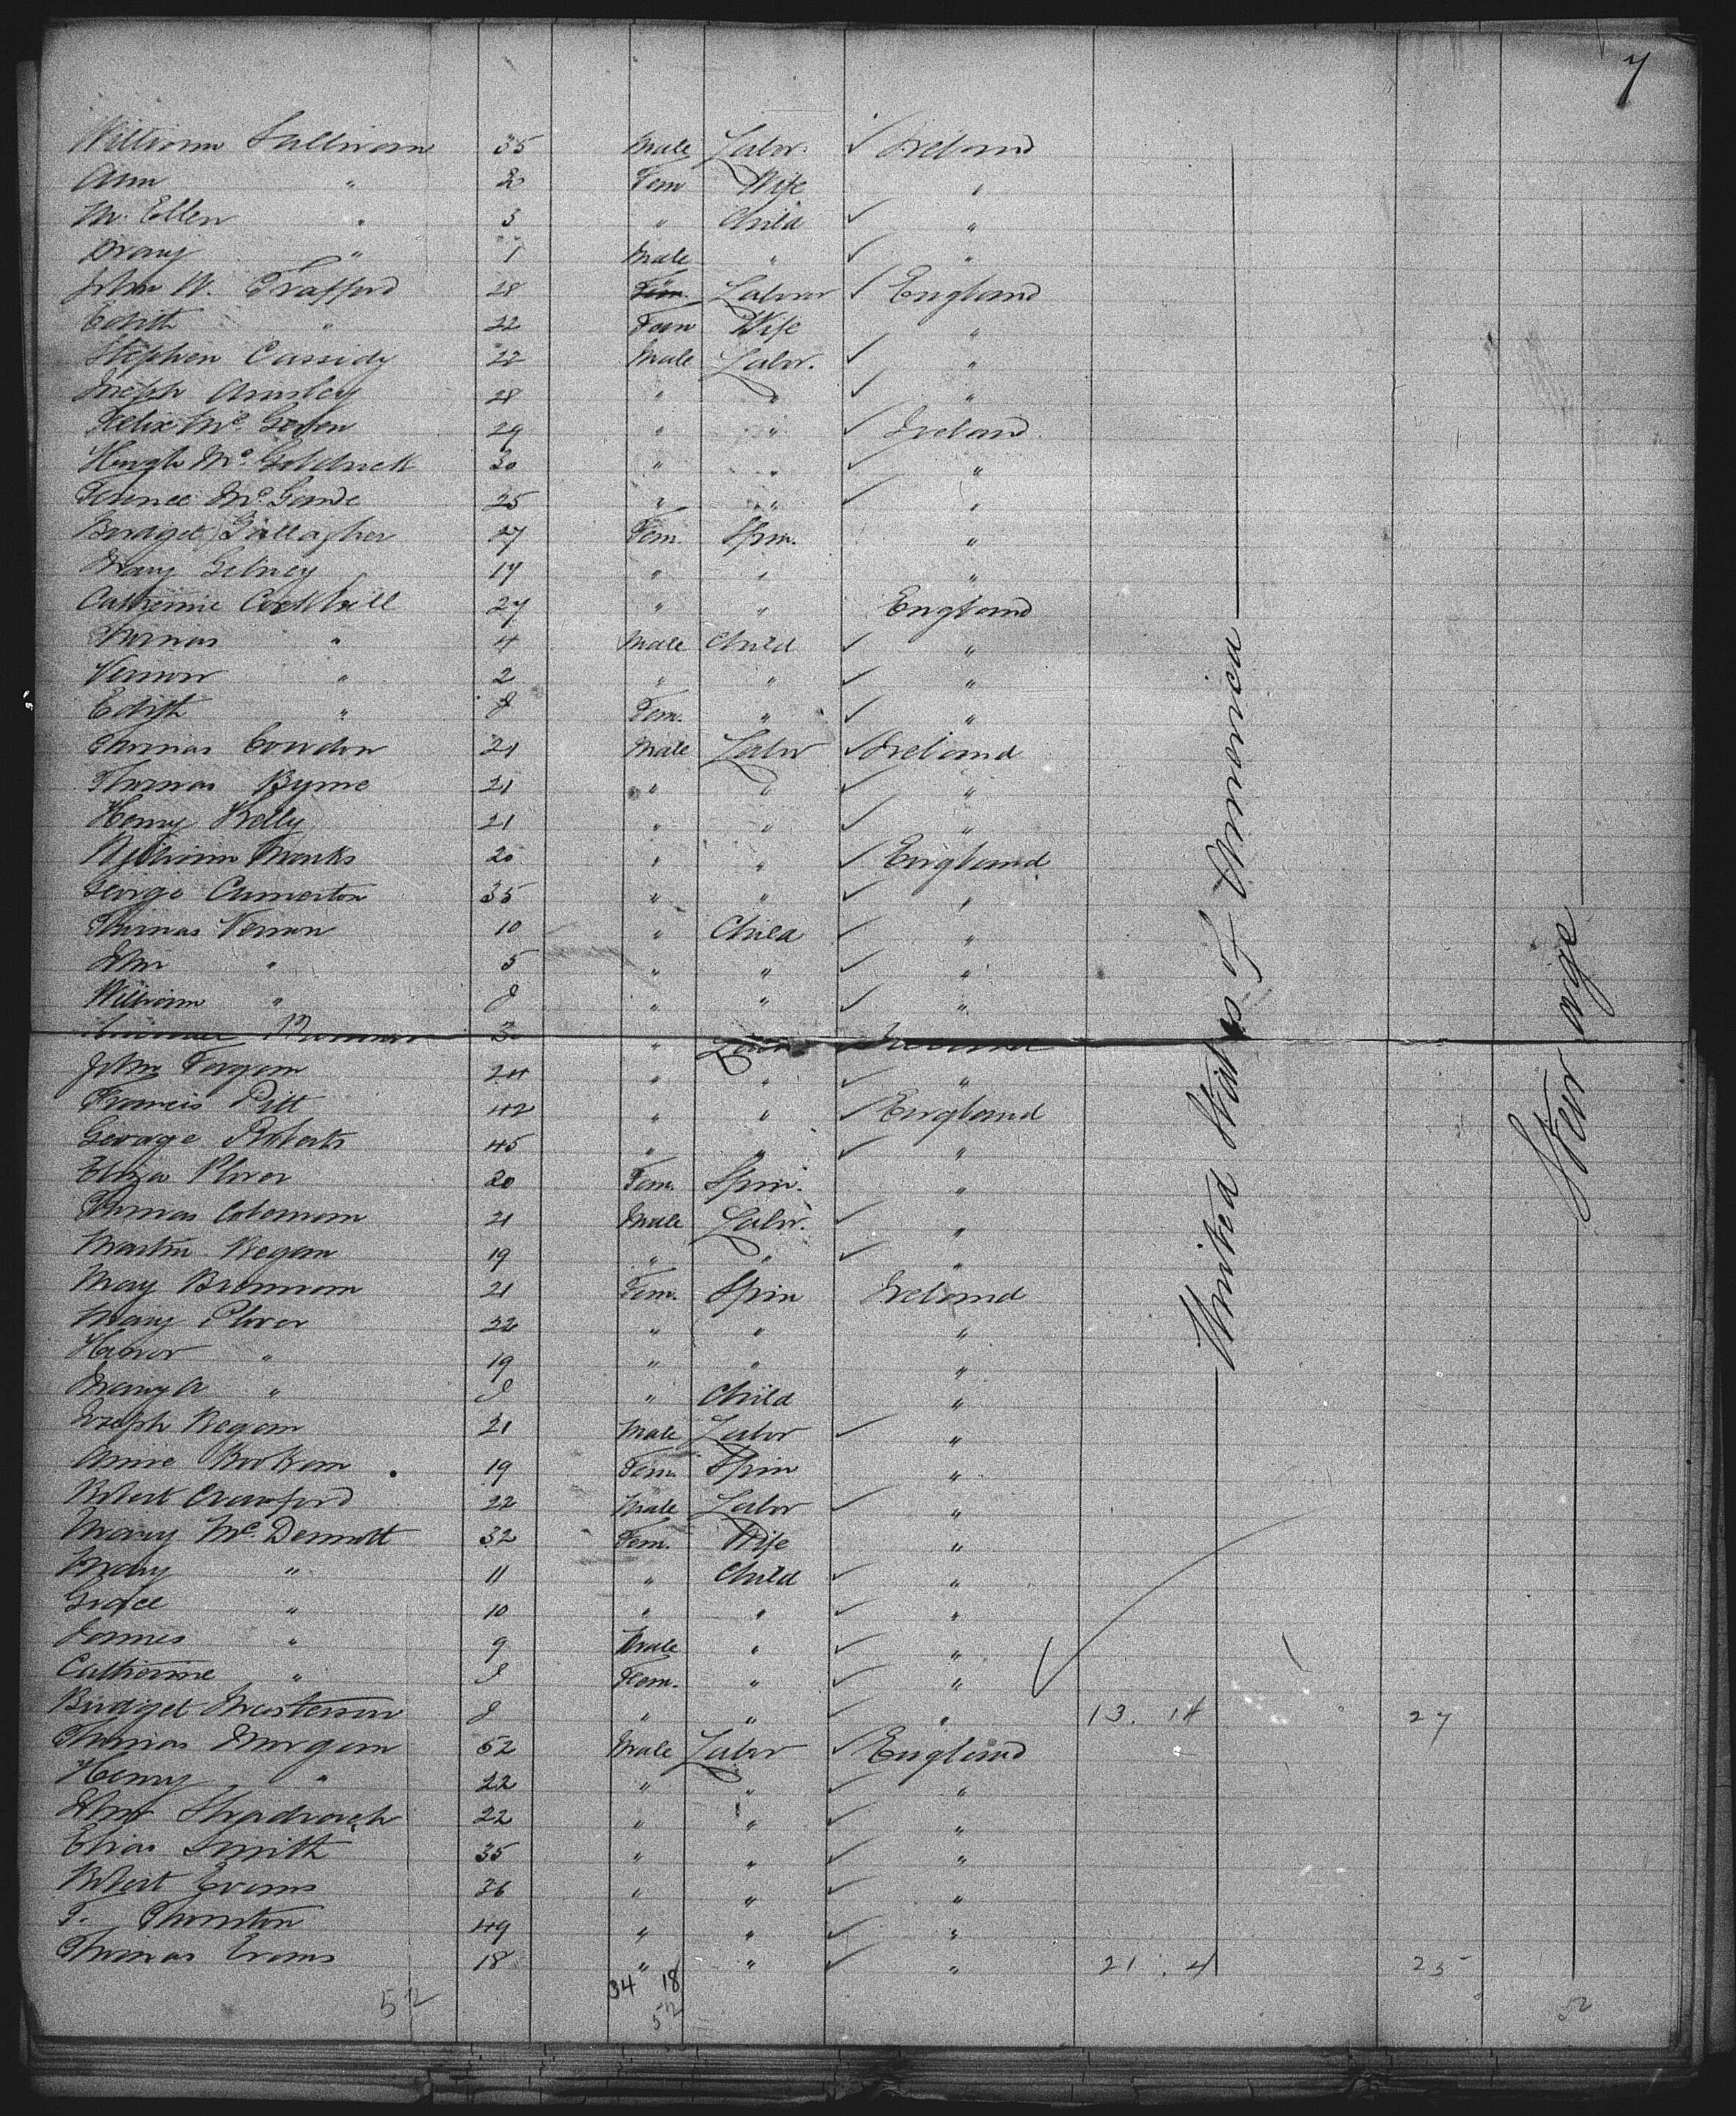 7
William Sullivan 35 Male Labor. ✓ Ireland
Ann " 2 Fem Wife "
M. Ellen " 3 " Child ✓ "
Mary " 1 Male " ✓ "
John W. Trafford 28 Fem. Laborer ✓ England
Edith " 22 Fem Wife "
Stephen Cassidy 22 Male Labor. ✓ "
Joseph 28 " " ✓ "
Felix Mc. 29 " " ✓ Ireland
Hugh Mc. Goldrick 30 " " ✓ "
Mc. 25 " " ✓ "
Bridget Gallagher 27 Fem. Spin. "
Mary 17 " " "
Catherine 27 " " England
Thomas " 4 Male Child ✓ "
Vernon " 2 " " ✓ "
Edith " Fem. " ✓ "
Thomas Condon 21 Male Labor ✓ Ireland
Thomas Byrne 21 " " ✓ "
Henry Kelly 21 " " ✓ "
William Monks 20 " " ✓ England
George 35 " " ✓ "
Thomas Vernon 10 " Child ✓ "
John " 5 " " ✓ "
William " " " ✓ "
" Ireland
John 24 " " ✓ "
Francis Pitt 42 " " ✓ England
George Roberts 45 " " ✓ "
Eliza 20 Fem. Spin. "
Thomas Coleman 21 Male Labor. ✓ "
Martin Regan 19 " " ✓ "
May Brennan 21 Fem. Spin Ireland
Mary 22 " " "
" 19 " " "
Mary A " " Child "
Joseph Regan 21 Male Labor ✓ "
Annie 19 Fem. Spin "
Robert Crawford 22 Male Labor ✓ "
Mary Mc. Dermott 32 Fem. Wife "
Mary " 11 " Child ✓ "
Grace " 10 " " ✓ "
James " 9 Male " ✓ "
Catherine " Fem. " ✓ "
Bridget Masterson " " ✓ " 13. 14 27
Thomas Morgan 52 Male Labor ✓ England
Henry " 22 " " ✓ "
John Shadrach 22 " " ✓ "
Elias Smith 35 " " ✓ "
Robert Evans 36 " " ✓ "
T. Thornton 49 " " ✓ "
Thomas Evans 18 " " ✓ " 21. 4 25
34 18
52 52 52
United States of America
Steerage